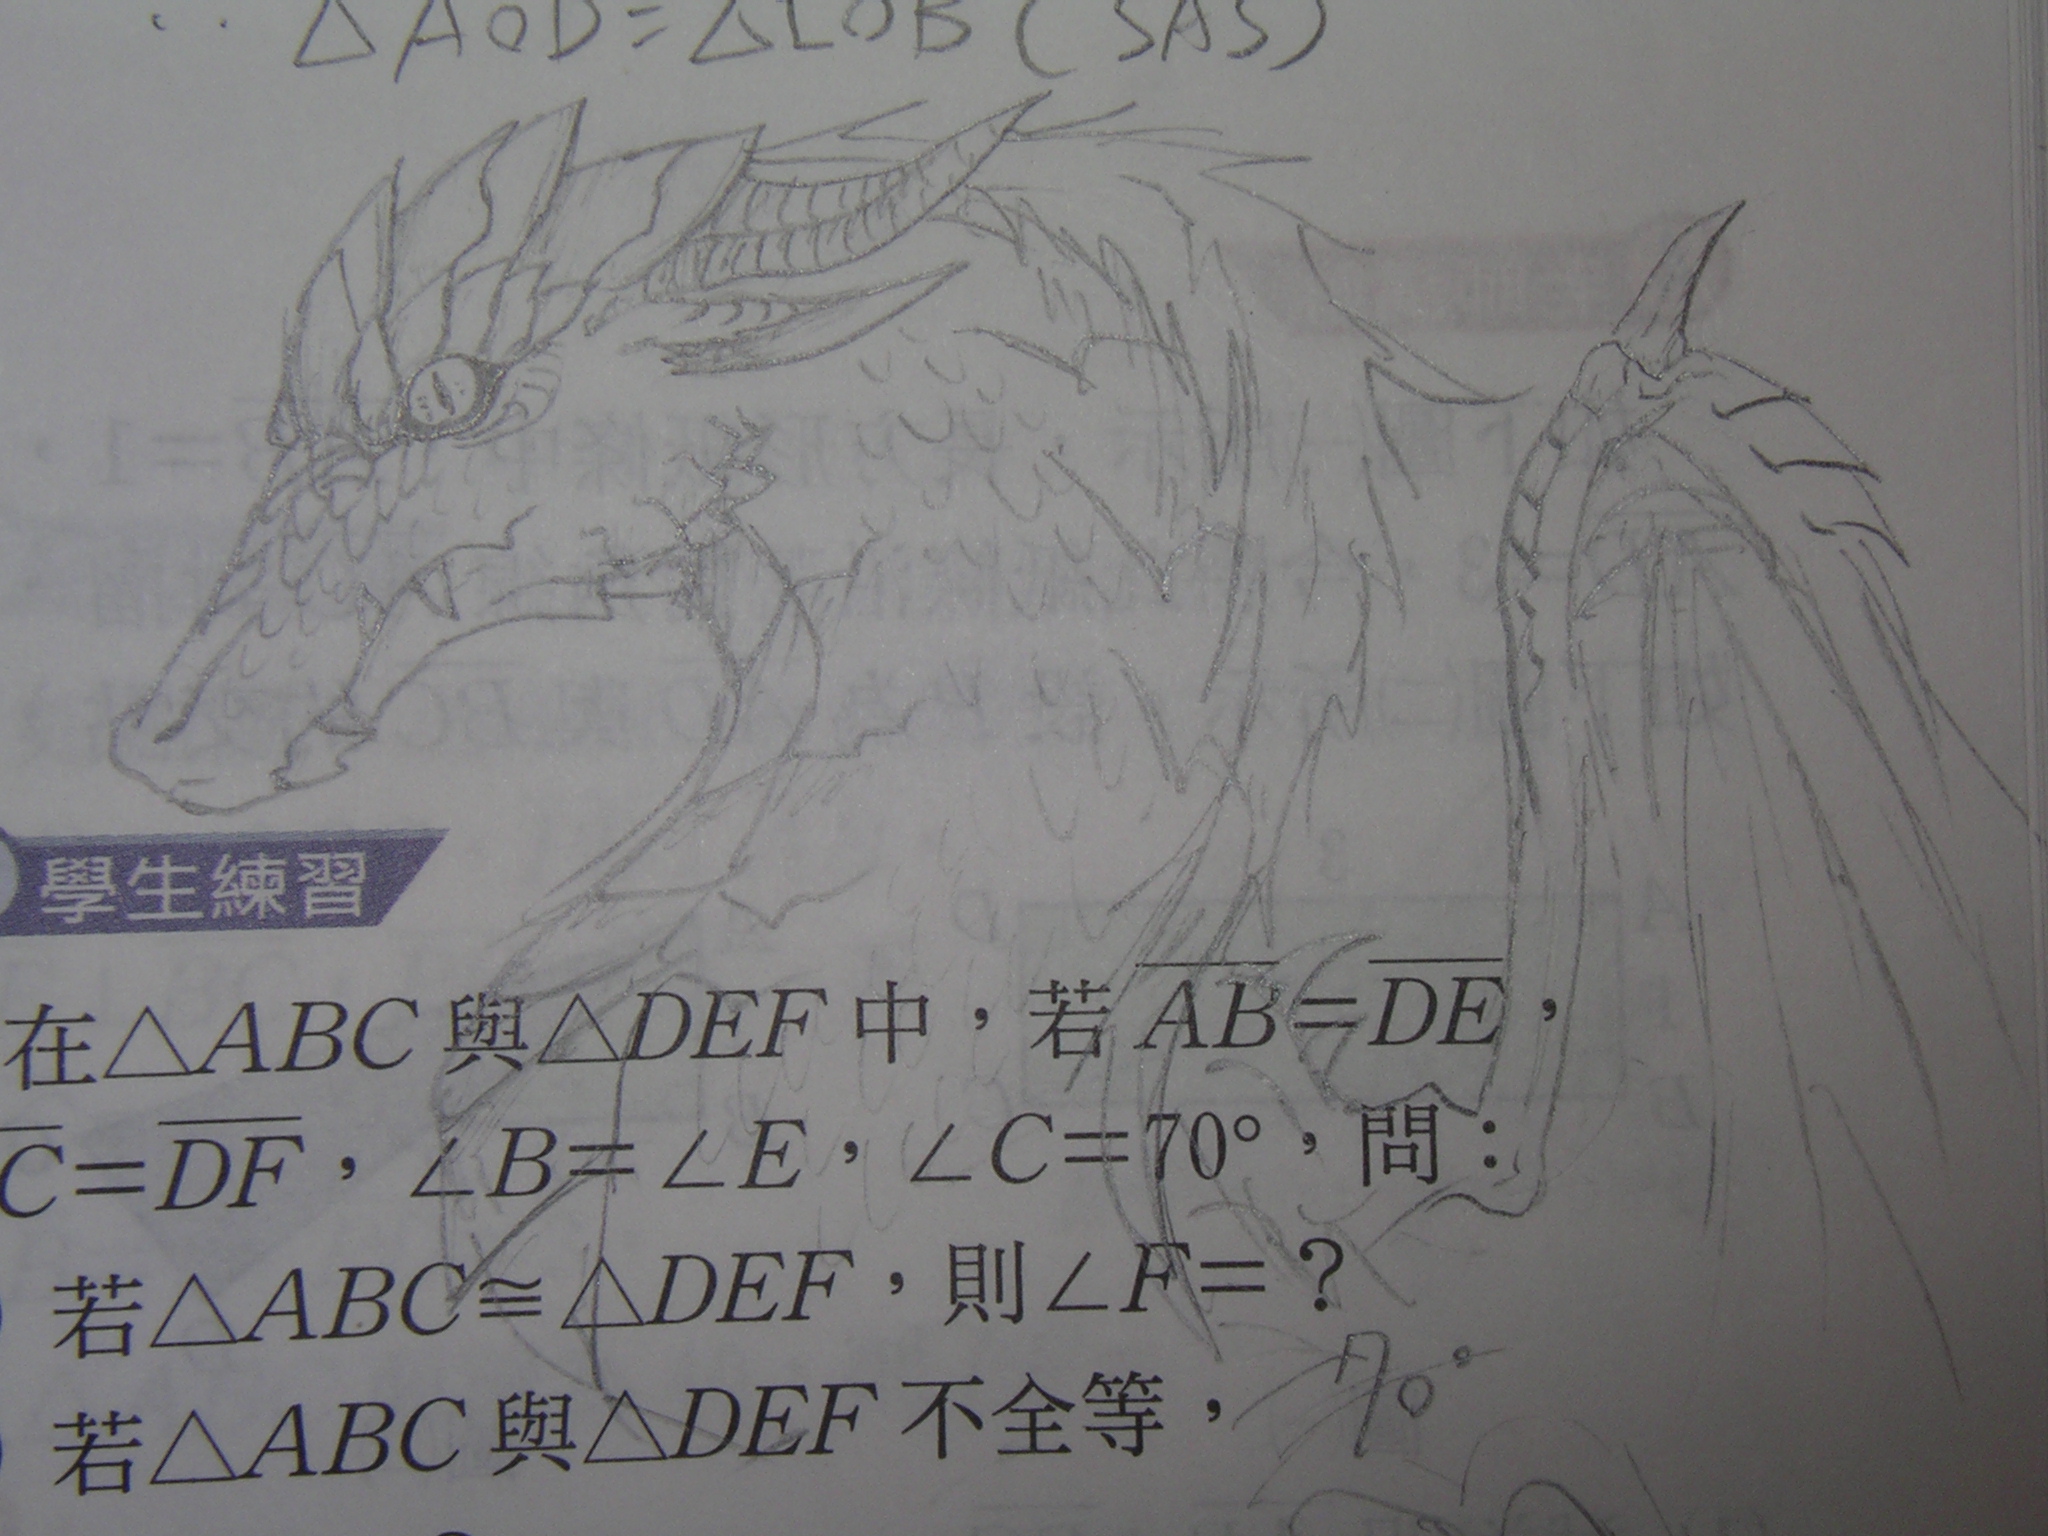 △AOD=△LOB(SAS)
學生練習
在△ABC與△DEF中，若AB=DE，
C=DF，∠B=∠E，∠C=70°，問：
若△ABC≅△DEF，則∠F=？
70°
若△ABC與△DEF不全等，